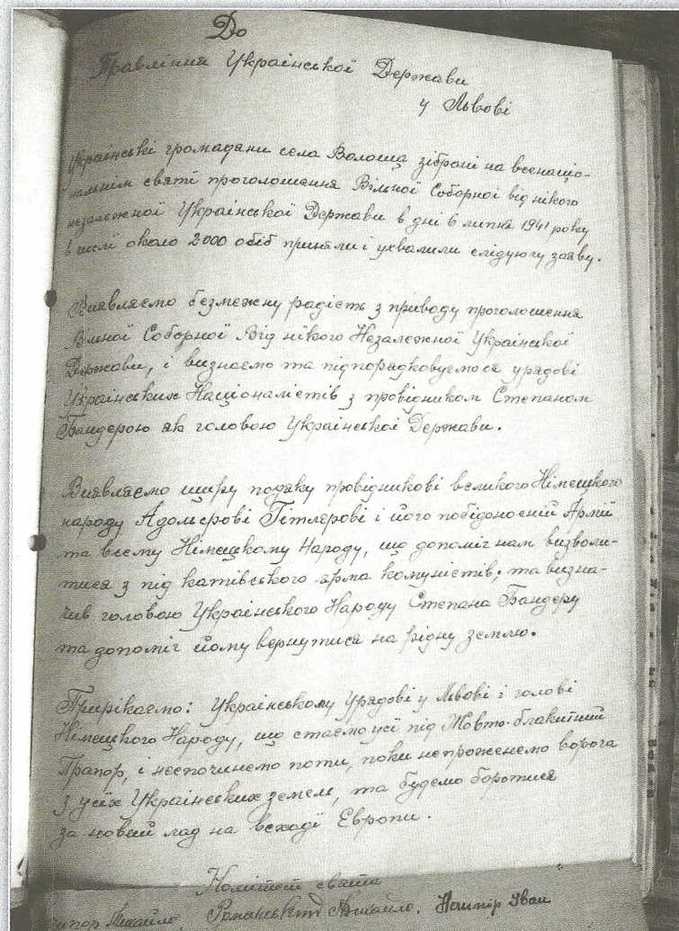 До
Правління Української Держави
у Львові
Українські громадани села Волоща зібрані на всенаціо-
нальнім святі проголошення Вільної Соборної від нікого
незалежної Української Держави в дні 6 липня 1941 року
в числі около 2000 осіб приняли і ухвалили слідуючу заяву.
Виявляємо безмежну радість з приводу проголошення
Вільної Соборної Від нікого Незалежної Української
Держави, і визнаємо та підпорядковуємося урядові
Українських Націоналістів з провідником Степаном
Бандерою як головою Української Держави.
Виявляємо щиру подяку провідникові великого Німецкого
народу Адольфові Гітлєрові і його побідоносній Армії
та всему Німецкому Народу, що допоміг нам визволи-
тися з під катівського ярма комуністів, та визна-
чив головою Українського Народу Степана Бандеру
та допоміг йому вернутися на рідну землю.
Прирікаємо: Українському Урядові у Львові і голові
Німецкого Народу, що стаємо усі під Жовто-блакитний
Прапор, і неспочинемо поти, поки непроженемо ворога
з усіх Українських земель, та будемо боротися
за новий лад на всході Европи.
Комітет свята
Михайло, Романський Михайло, Іван